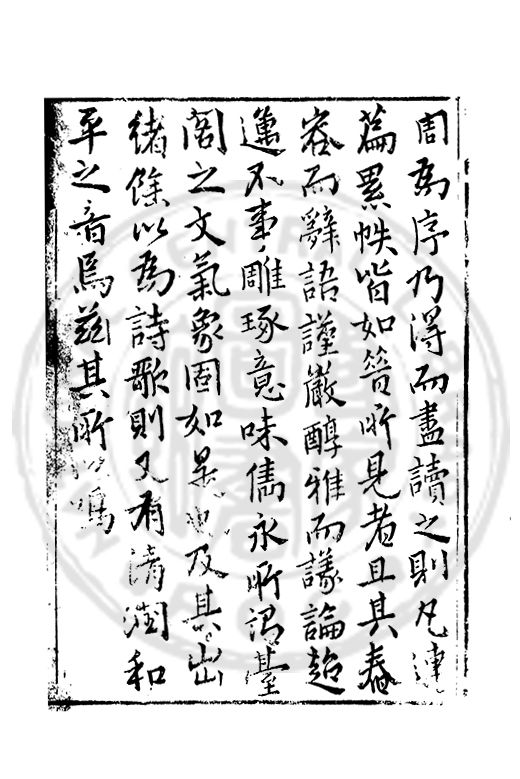 周為序乃得而盡讀之則凡連
篇累帙皆如簮所見者且其舂
容而辭語謹嚴醇雅而議論超
邁不事雕琢意味雋永所謂臺
閣之文氣象固如是也及其出
緒餘以為詩歌則又有清潤和
平之音焉茲其所以鳴